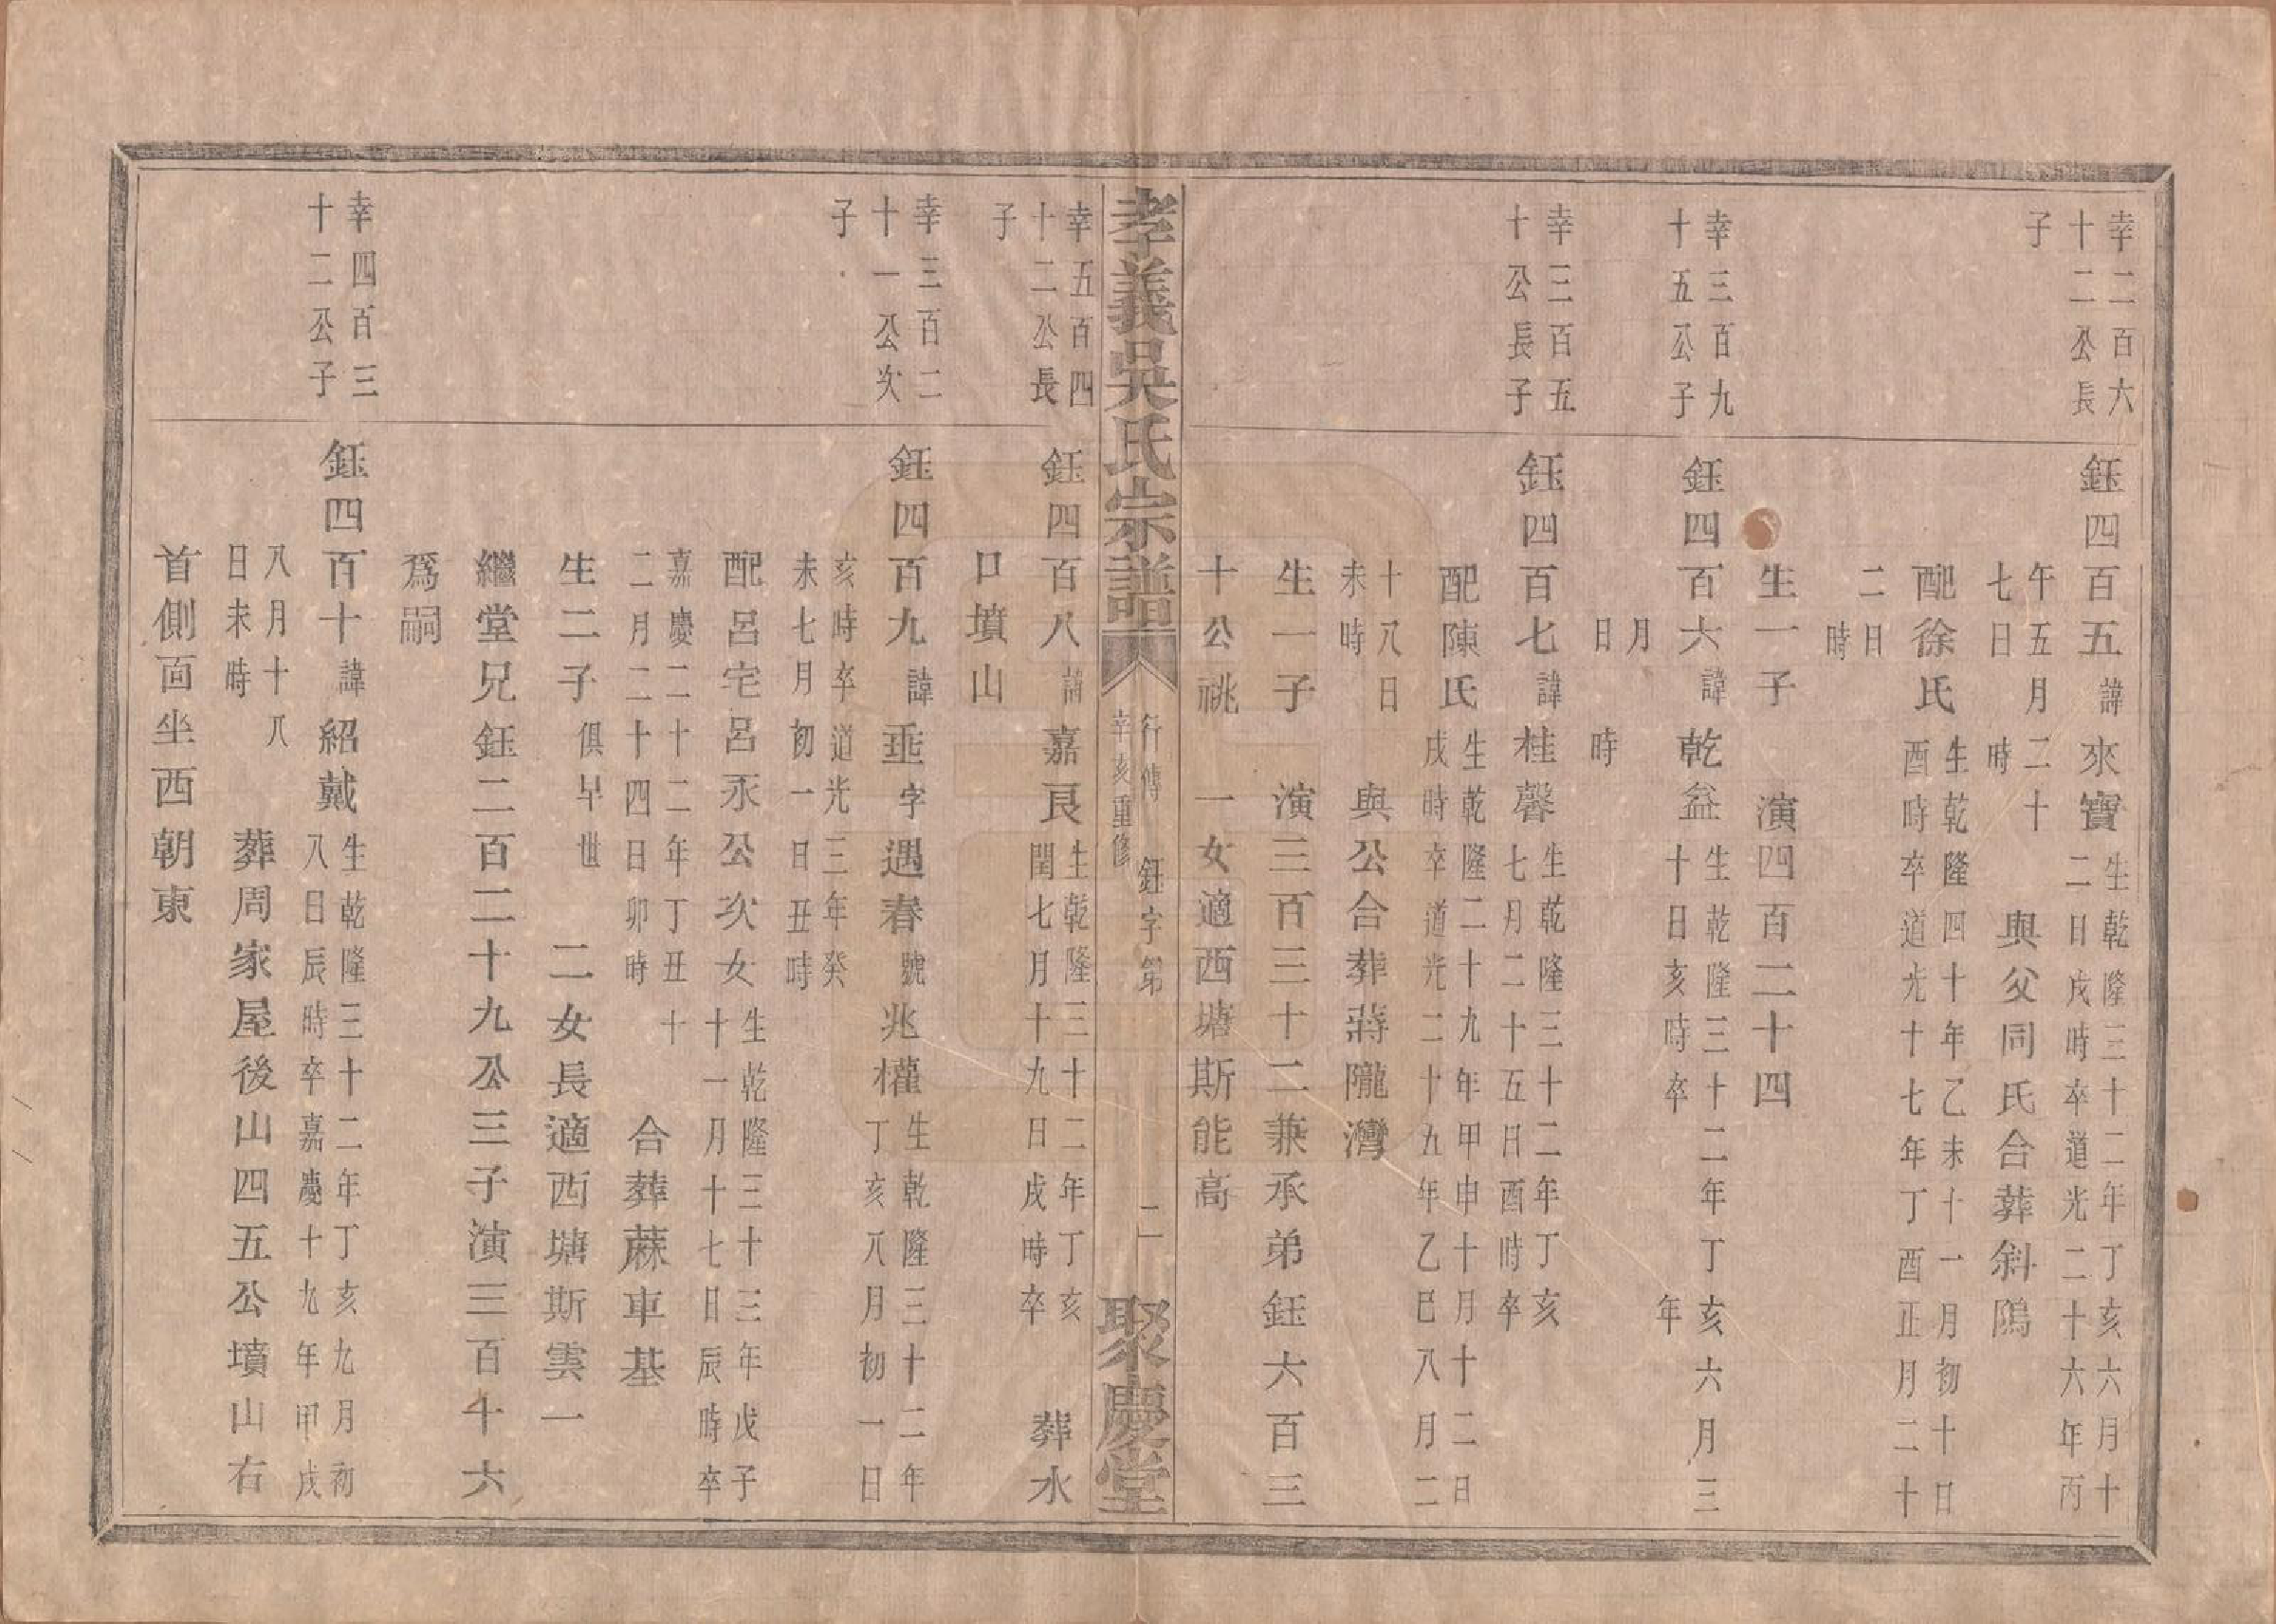 幸二百六
十二公長
子
鈺四百五諱來寶
生乾隆三十二年丁亥六月十
二日戌時卒道光二十六年丙
午五月二十
七日時
與父同氏合葬斜隖
配徐氏
生乾隆四十年乙未十一月初十日
酉時卒道光十七年丁酉正月二十
二日
時
生一子 演四百二十四
幸三百九
十五公子
鈺四百六諱乾益
生乾隆三十二年丁亥六月三
十日亥時卒 年
月
日 時
幸三百五
十公長子
鈺四百七諱桂馨
生乾隆三十二年丁亥
七月二十五日酉時卒
配陳氏
生乾隆二十九年甲申十月十二日
戌時卒道光二十五年乙巳八月二
十八日
未時
與公合葬蔣隴灣
生一子 演三百三十二兼承弟鈺六百三
十公祧 一女適西塘斯能高
孝義吳氏宗譜
行傳 鈺字第 二
辛亥重修
聚慶堂
幸五百四
十二公長
子
鈺四百八諱嘉良
生乾隆三十二年丁亥
閏七月十九日戌時卒
葬水
口墳山
幸三百二
十一公次
子
鈺四百九諱垂字遇春號兆權
生乾隆三十二年
丁亥八月初一日
亥時卒道光三年癸
未七月初一日丑時
配呂宅呂永公次女
生乾隆三十三年戊子
十一月十七日辰時卒
嘉慶二十二年丁丑十
二月二十四日卯時
合葬蔴車基
生二子俱早世 二女長適西塘斯雲一
繼堂兄鈺二百二十九公三子演三百十六
爲嗣
幸四百三
十二公子
鈺四百十諱紹戴
生乾隆三十二年丁亥九月初
八日辰時卒嘉慶十九年甲戌
八月十八
日未時
葬周家屋後山四五公墳山右
首側面坐西朝東